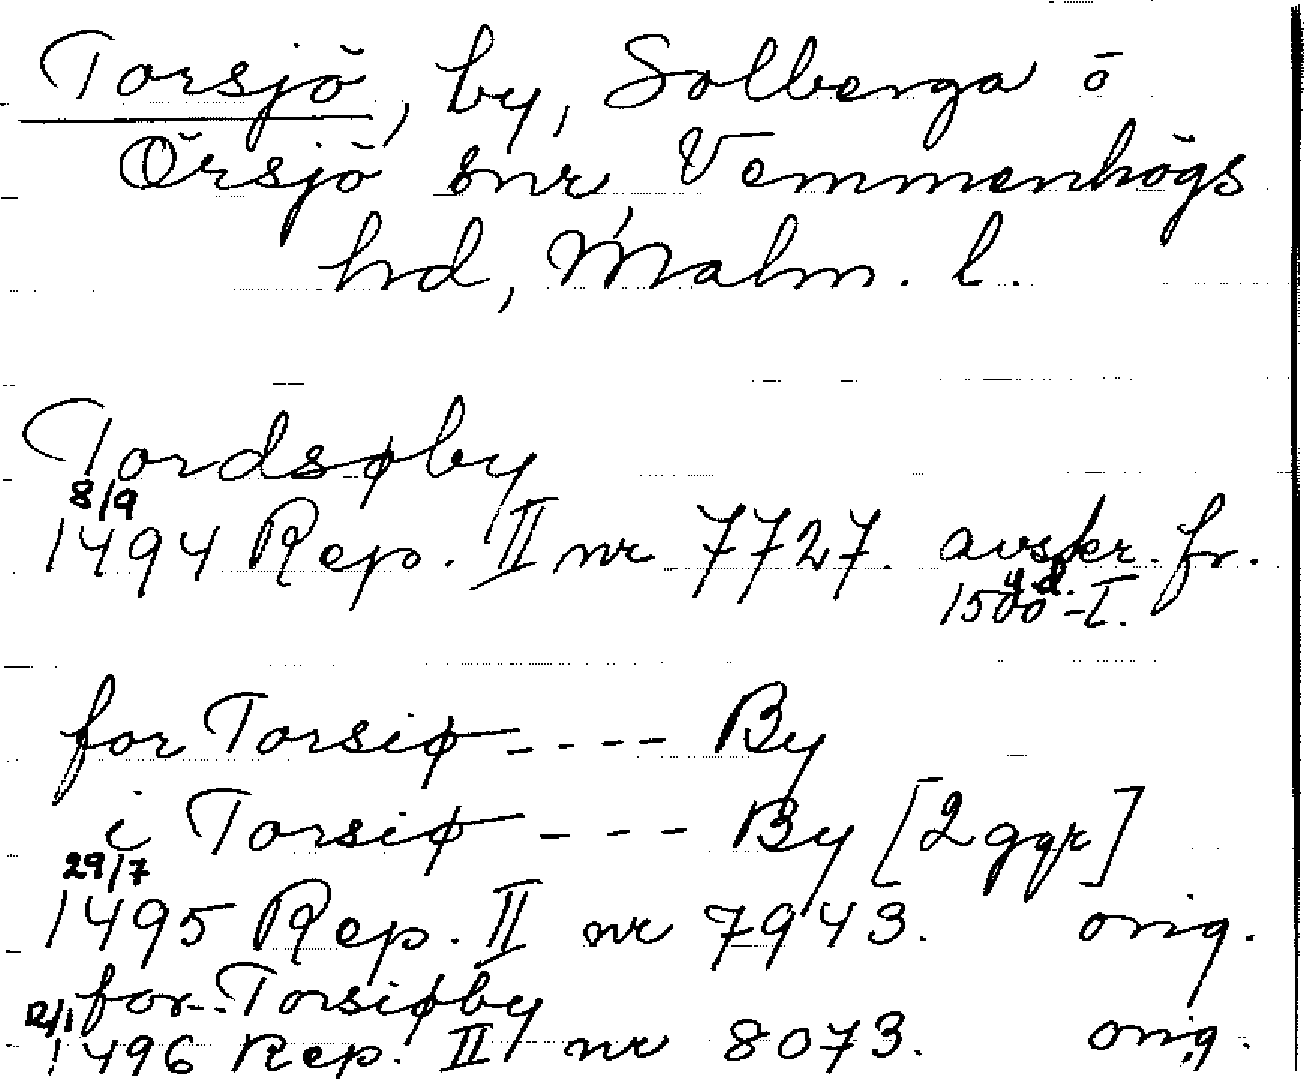 Torsjö, by, Solberga o
Örsjö snr, Vemmenhögs
hd, Malm. l.
Tordsøby
8/9
1494 Rep. II nr 7727. avskr. fr.
1500 -t.
for Torsiø - - - - By
i Torsiø - - - By [2 ggr]
29/7
1495 Rep. II nr 7943. orig.
for - Torsiøby
12/1
1496 Rep. II nr 8073. orig.